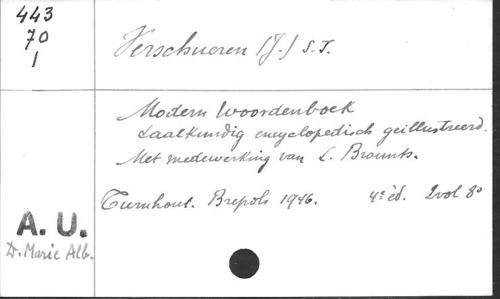 443
70
1
Verschueren (J.) S.J.
Modern Woordenboek
taalkundig encyclopedisch geïllustreerd.
Met medewerking van L. Brounts.
Turnhout. Brepols 1946. 4e éd. 2 vol 8°
A. U.
Dr. Marie Alb.